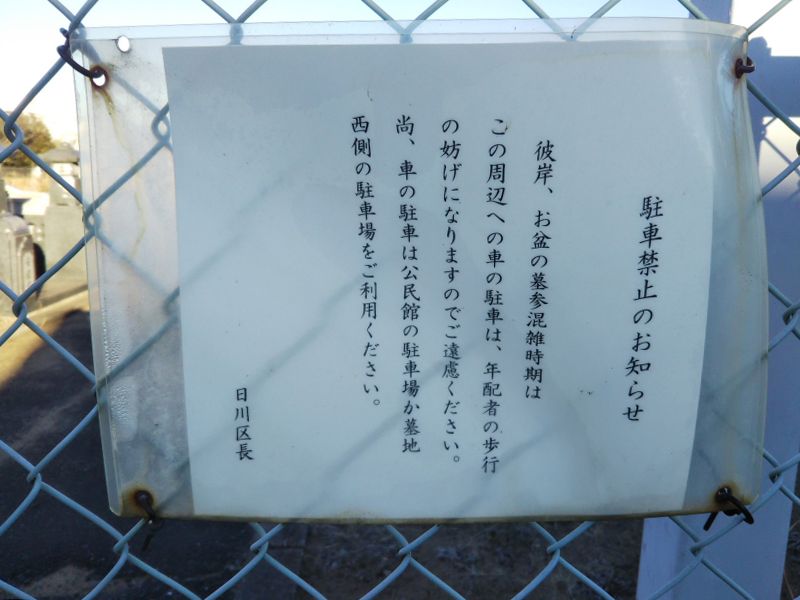 駐車禁止のお知らせ
彼岸、お盆の墓参混雑時期は
この周辺への車の駐車は、年配者の歩行
の妨げになりますのでご遠慮ください。
尚、車の駐車は公民館の駐車場か墓地
西側の駐車場をご利用ください。
日川区長